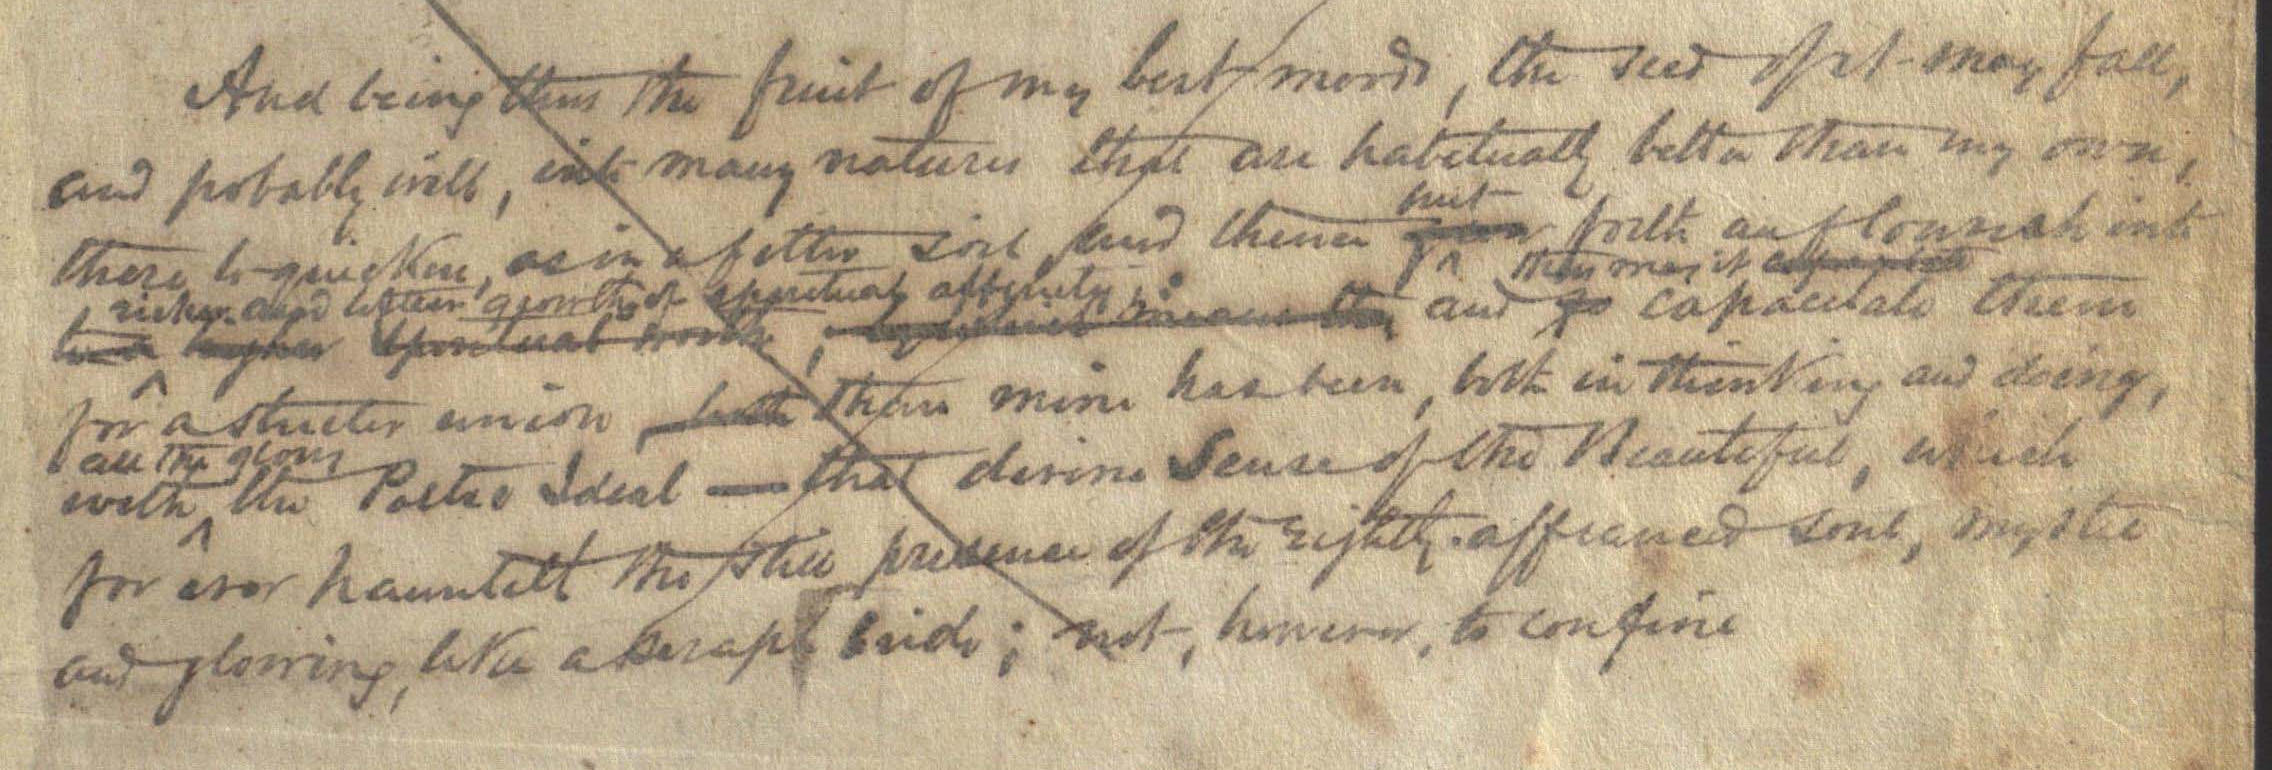 And being thus the fruit of my best moods, the seed of it may fall,
and probably will, into many natures that are habitually better than my own,
there to quicken, as in a fitter soil and thence
put
forth an flourish into
they may it
richer and better growths of spiritual affinity
higher spiritual worth, and so capacitate them
for a stricter union, than mine has been, both in thinking and doing,
all the glow
with the Poetic Ideal — that divine Sense of the Beautiful, which
for ever haunteth the still presence of the rightly-affianced soul, mystic
and glowing, like a seraph bride; not, however, to confine